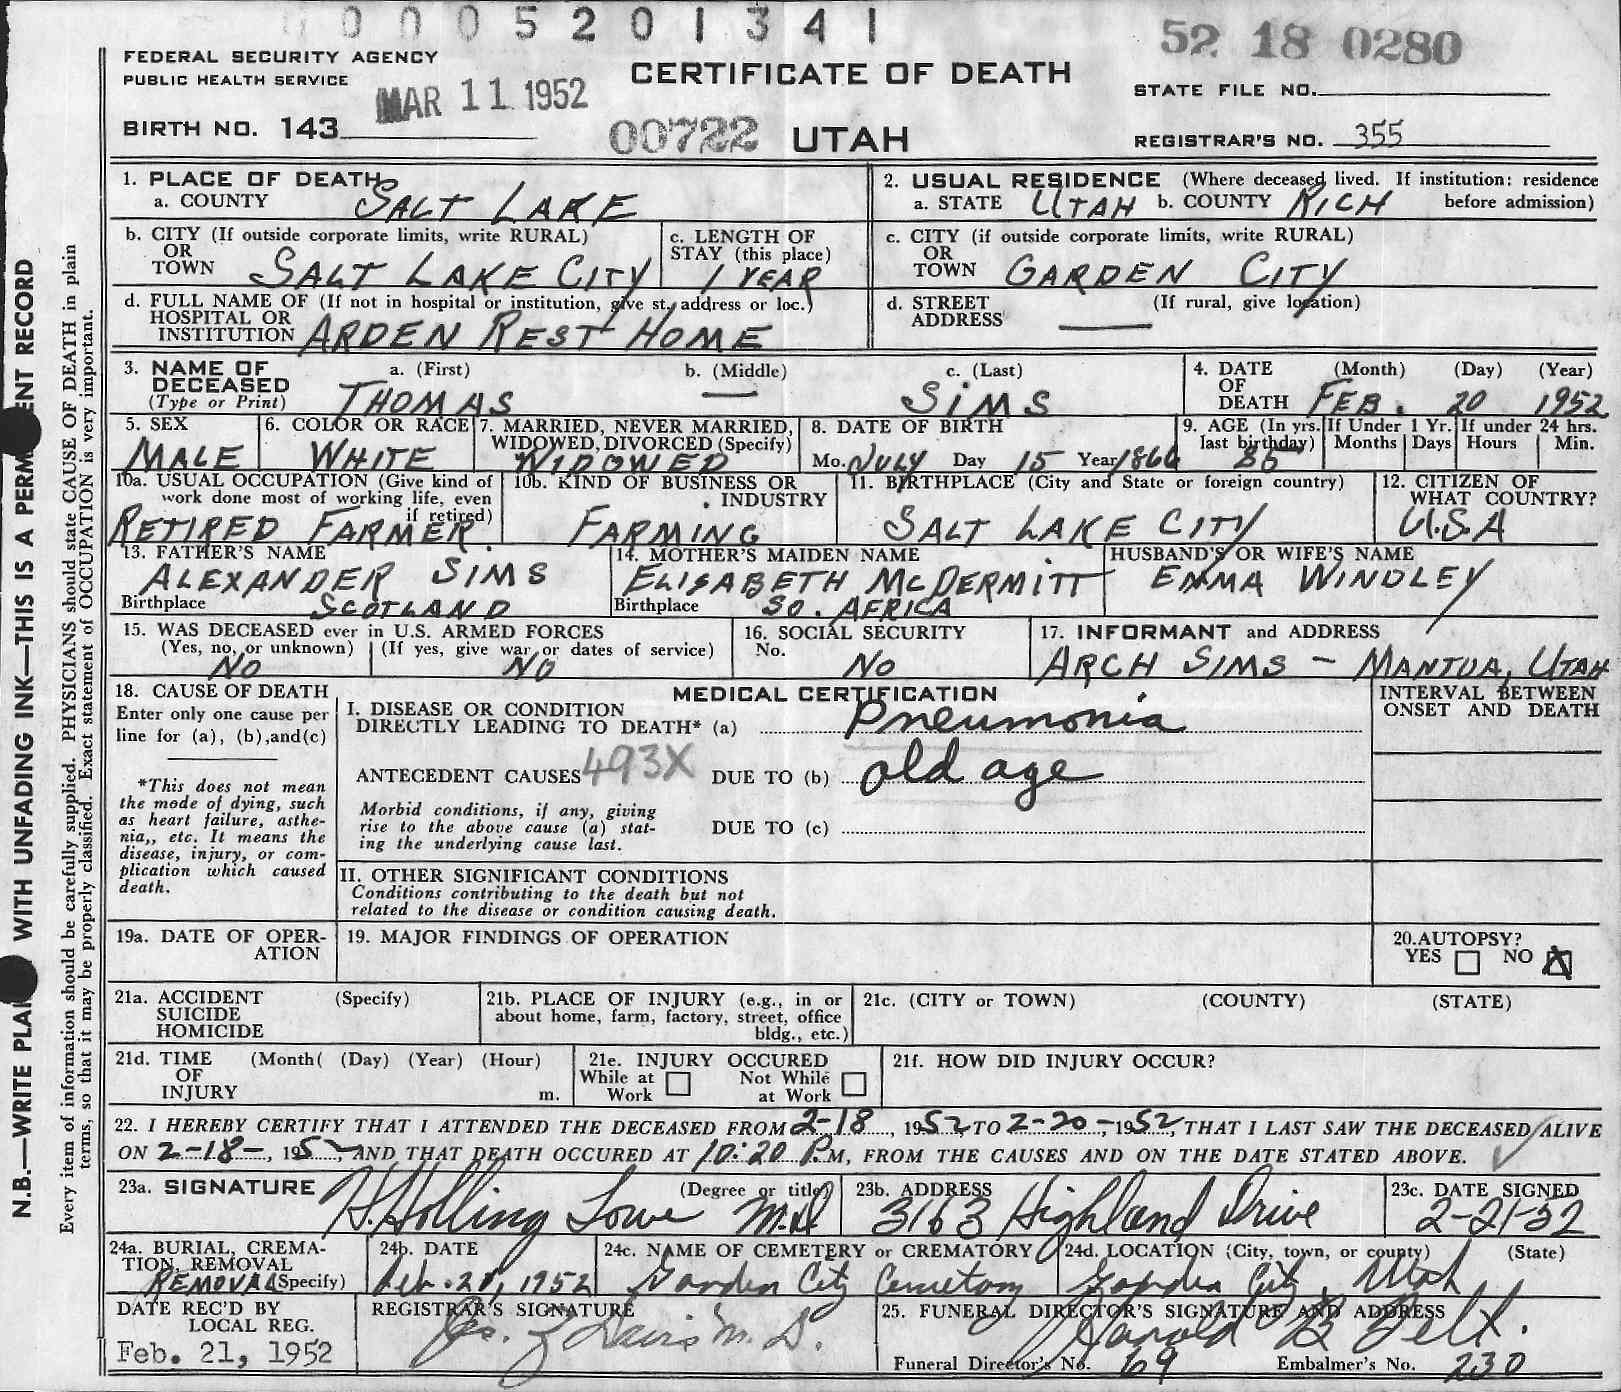 0005201341
52 18 0280
FEDERAL SECURITY AGENCY
PUBLIC HEALTH SERVICE
MAR 11 1952
CERTIFICATE OF DEATH
STATE FILE NO.
BIRTH NO. 143
00722 UTAH
REGISTRAR'S NO. 355
N.B.—WRITE PLAI WITH UNFADING INK—THIS IS A PERM ENT RECORD
Every item of information should be carefully supplied. PHYSICIANS should state CAUSE OF DEATH in plain
terms, so that it may be properly classified. Exact statement of OCCUPATION is very important.
1. PLACE OF DEATH
a. COUNTY SALT LAKE
2. USUAL RESIDENCE (Where deceased lived. If institution: residence
a. STATE UTAH b. COUNTY RICH before admission)
b. CITY (If outside corporate limits, write RURAL)
OR
TOWN SALT LAKE CITY
c. LENGTH OF
STAY (this place)
1 YEAR
c. CITY (if outside corporate limits, write RURAL)
OR
TOWN GARDEN CITY
d. FULL NAME OF (If not in hospital or institution, give st. address or loc.)
HOSPITAL OR
INSTITUTION ARDEN REST HOME
d. STREET (If rural, give location)
ADDRESS —
3. NAME OF
DECEASED
(Type or Print)
a. (First) b. (Middle) c. (Last)
THOMAS — SIMS
4. DATE (Month) (Day) (Year)
OF
DEATH FEB. 20 1952
5. SEX
MALE
6. COLOR OR RACE
WHITE
7. MARRIED, NEVER MARRIED,
WIDOWED, DIVORCED (Specify)
WIDOWED
8. DATE OF BIRTH
Mo. JULY Day 15 Year 1866
9. AGE (In yrs.
last birthday)
85
If Under 1 Yr.
Months Days
If under 24 hrs.
Hours Min.
10a. USUAL OCCUPATION (Give kind of
work done most of working life, even
if retired)
RETIRED FARMER
10b. KIND OF BUSINESS OR
INDUSTRY
FARMING
11. BIRTHPLACE (City and State or foreign country)
SALT LAKE CITY
12. CITIZEN OF
WHAT COUNTRY?
U.S.A
13. FATHER'S NAME
ALEXANDER SIMS
Birthplace SCOTLAND
14. MOTHER'S MAIDEN NAME
ELISABETH McDERMITT
Birthplace SO. AFRICA
HUSBAND'S OR WIFE'S NAME
EMMA WINDLEY
15. WAS DECEASED ever in U.S. ARMED FORCES
(Yes, no, or unknown) (If yes, give war or dates of service)
NO NO
16. SOCIAL SECURITY
No. NO
17. INFORMANT and ADDRESS
ARCH SIMS – MANTUA, UTAH
18. CAUSE OF DEATH
Enter only one cause per
line for (a), (b),and(c)
*This does not mean
the mode of dying, such
as heart failure, asthe-
nia,, etc. It means the
disease, injury, or com-
plication which caused
death.
MEDICAL CERTIFICATION
I. DISEASE OR CONDITION
DIRECTLY LEADING TO DEATH* (a) Pneumonia
ANTECEDENT CAUSES 493X DUE TO (b) old age
Morbid conditions, if any, giving
rise to the above cause (a) stat-
ing the underlying cause last.
DUE TO (c)
II. OTHER SIGNIFICANT CONDITIONS
Conditions contributing to the death but not
related to the disease or condition causing death.
INTERVAL BETWEEN
ONSET AND DEATH
19a. DATE OF OPER-
ATION
19. MAJOR FINDINGS OF OPERATION
20.AUTOPSY?
YES NO X
21a. ACCIDENT (Specify)
SUICIDE
HOMICIDE
21b. PLACE OF INJURY (e.g., in or
about home, farm, factory, street, office
bldg., etc.)
21c. (CITY or TOWN) (COUNTY) (STATE)
21d. TIME (Month( (Day) (Year) (Hour)
OF
INJURY m.
21e. INJURY OCCURED
While at Not While
Work at Work
21f. HOW DID INJURY OCCUR?
22. I HEREBY CERTIFY THAT I ATTENDED THE DECEASED FROM 2-18, 1952, TO 2-20-, 1952, THAT I LAST SAW THE DECEASED ALIVE
ON 2-18-, 1952 AND THAT DEATH OCCURED AT 10:20 P.M, FROM THE CAUSES AND ON THE DATE STATED ABOVE.
23a. SIGNATURE (Degree or title)
H. Holling Lowe M.D
23b. ADDRESS
3163 Highland Drive
23c. DATE SIGNED
2-21-52
24a. BURIAL, CREMA-
TION, REMOVAL
REMOVAL (Specify)
24b. DATE
Feb. 21, 1952
24c. NAME OF CEMETERY or CREMATORY
Garden City Cemetery
24d. LOCATION (City, town, or county) (State)
Garden City, Utah
DATE REC'D BY
LOCAL REG.
Feb. 21, 1952
REGISTRAR'S SIGNATURE
Davis M. D.
25. FUNERAL DIRECTOR'S SIGNATURE AND ADDRESS
Harold B Felt.
Funeral Director's No. 69 Embalmer's No. 230